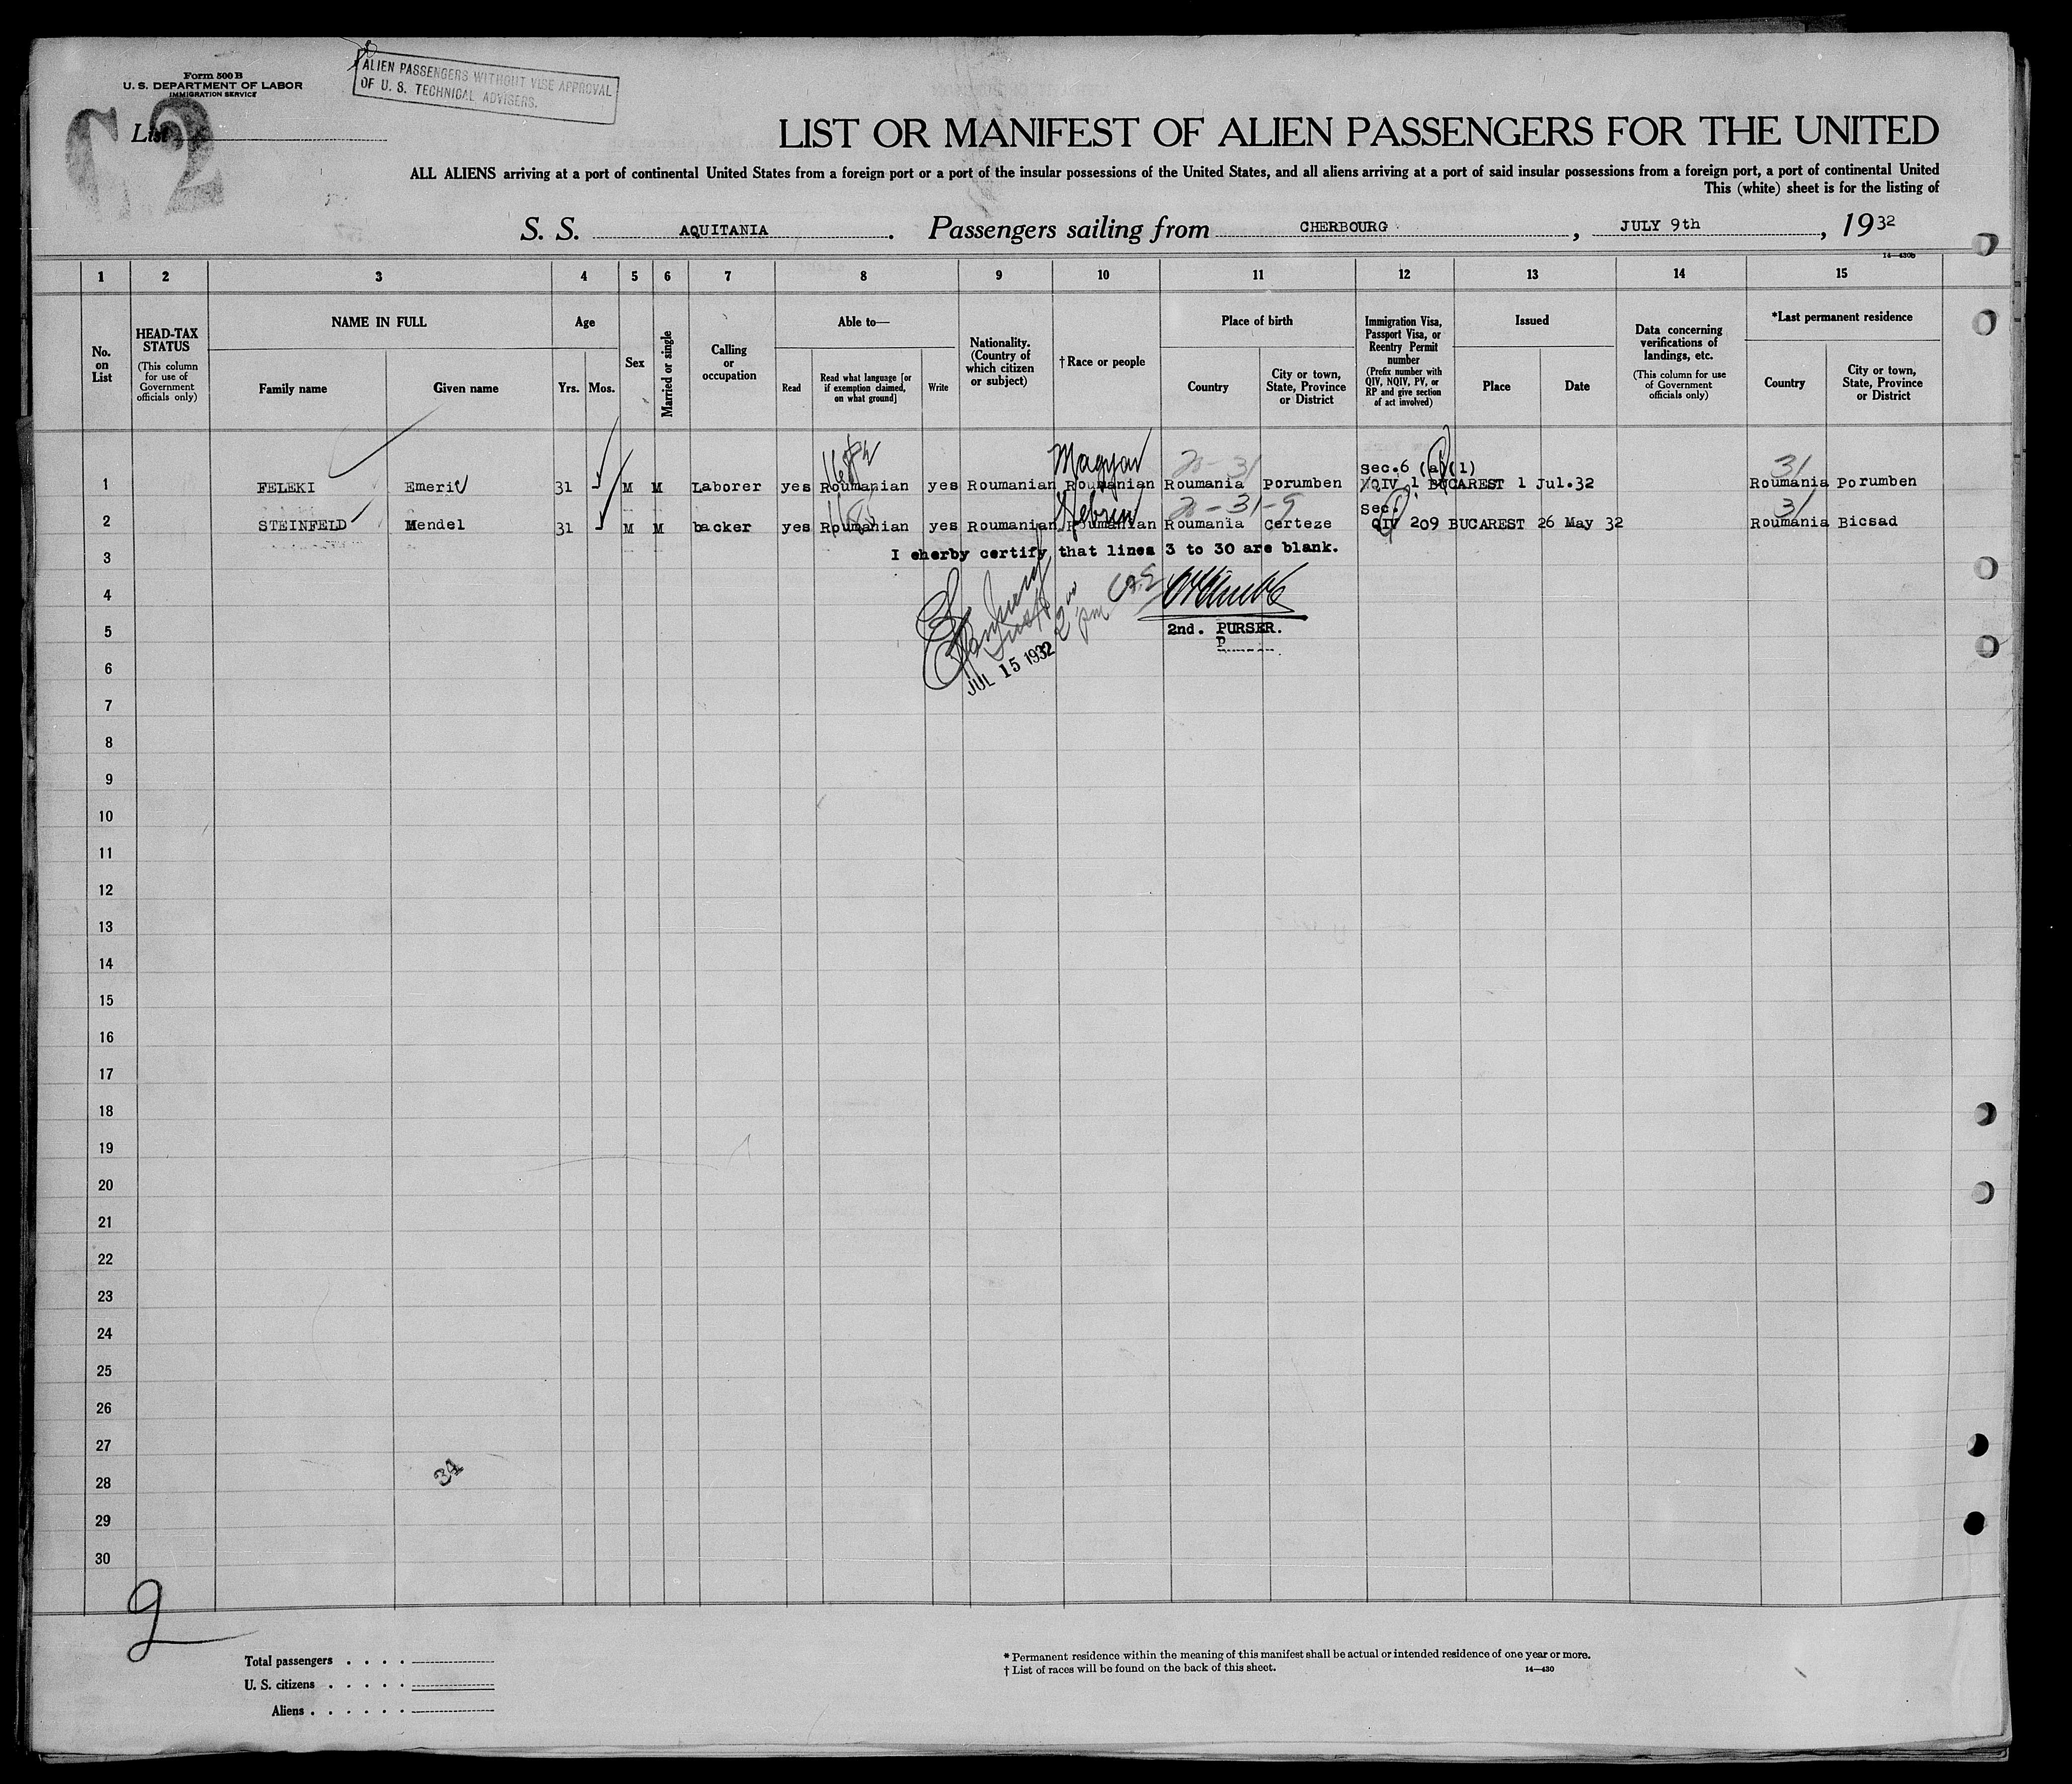 Form 500 B
U. S. DEPARTMENT OF LABOR
IMMIGRATION SERVICE
ALIEN PASSENGERS WITHOUT VISE APPROVAL
OF U. S. TECHNICAL ADVISERS.
List
2
LIST OR MANIFEST OF ALIEN PASSENGERS FOR THE UNITED
ALL ALIENS arriving at a port of continental United States from a foreign port or a port of the insular possessions of the United States, and all aliens arriving at a port of said insular possessions from a foreign port, a port of continental United
This (white) sheet is for the listing of
S. S. AQUITANIA . Passengers sailing from CHERBOURG , JULY 9th , 1932
14—430b
1 2 3 4 5 6 7 8 9 10 11 12 13 14 15
No. on List
HEAD-TAX STATUS (This column for use of Government officials only)
NAME IN FULL
Family name
Given name
Age
Yrs.
Mos.
Sex
Married or single
Calling or occupation
Able to—
Read
Read what language [or if exemption claimed, on what ground]
Write
Nationality. (Country of which citizen or subject)
† Race or people
Place of birth
Country
City or town, State, Province or District
Immigration Visa, Passport Visa, or Reentry Permit number (Prefix number with QIV, NQIV, PV, or RP and give section of act involved)
Issued
Place
Date
Data concerning verifications of landings, etc. (This column for use of Government officials only)
*Last permanent residence
Country
City or town, State, Province or District
Magyar 20-31 Sec.6 (a)(1) 31
1 FELEKI Emeric 31 M M Laborer yes Roumanian yes Roumanian Roumanian Roumania Porumben QIV 1 BUCAREST 1 Jul.32 Roumania Porumben
Hebrew 20-31-9 Sec. 31
2 STEINFELD Mendel 31 M M backer yes Roumanian yes Roumanian Roumanian Roumania Certeze QIV 209 BUCAREST 26 May 32 Roumania Bicsad
3 I eherby certify that lines 3 to 30 are blank.
4
5 2nd. PURSER.
P
6 JUL 15 1932 2 pm
7
8
9
10
11
12
13
14
15
16
17
18
19
20
21
22
23
24
25
26
27
28 34
29
30
2
Total passengers . . . .
U. S. citizens . . . . .
Aliens . . . . . .
* Permanent residence within the meaning of this manifest shall be actual or intended residence of one year or more.
† List of races will be found on the back of this sheet. 14—430